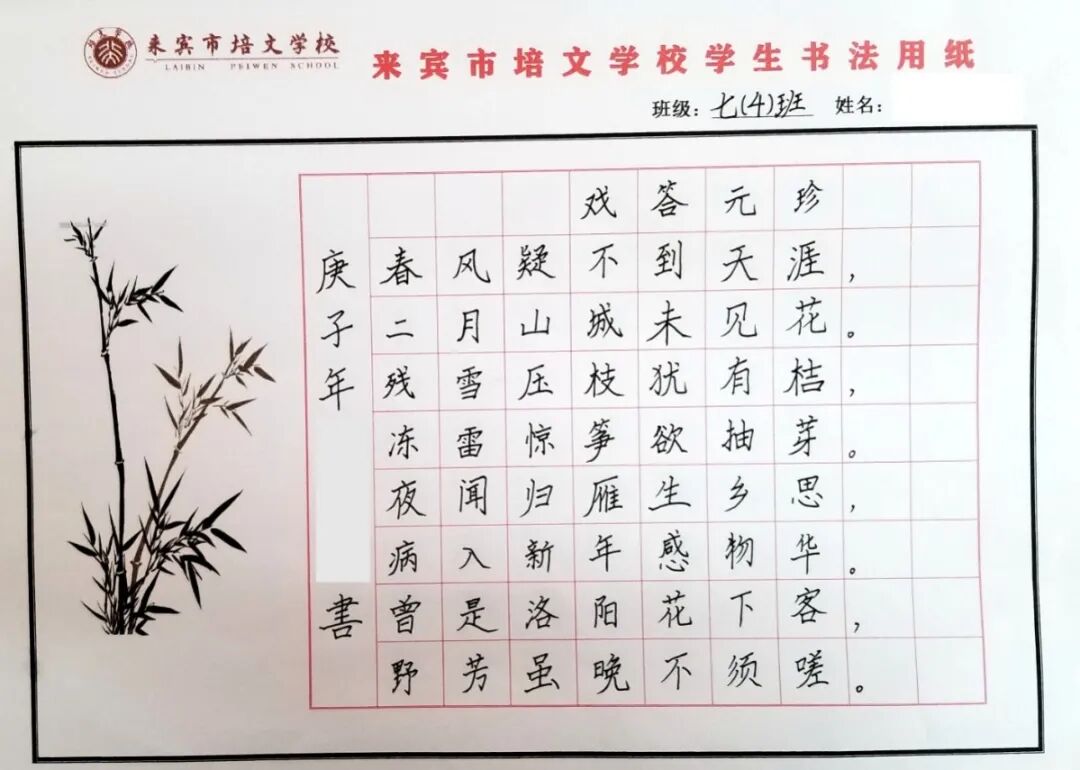 来宾市培文学校
LAIBIN PEIWEN SCHOOL
来宾市培文学校学生书法用纸
班级：七(4)班 姓名：
戏答元珍
春风疑不到天涯，
二月山城未见花。
残雪压枝犹有桔，
冻雷惊筝欲抽芽。
夜闻归雁生乡思，
病入新年感物华。
曾是洛阳花下客，
野芳虽晚不须嗟。
庚子年
書